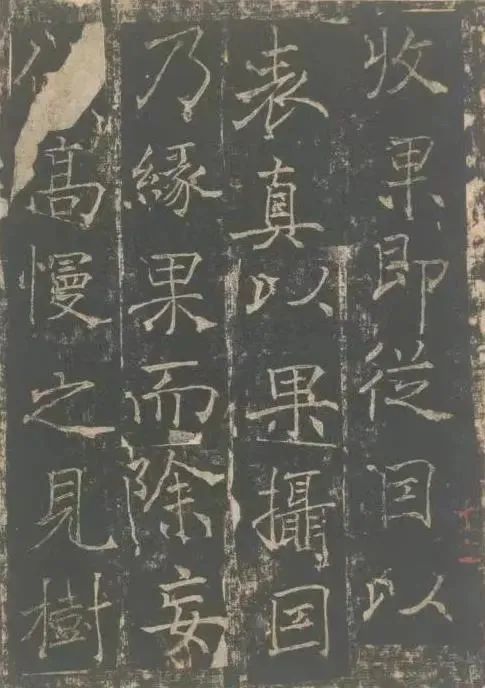 收果即從因以
表真以果攝因
乃緣果而除妄
高慢之見樹